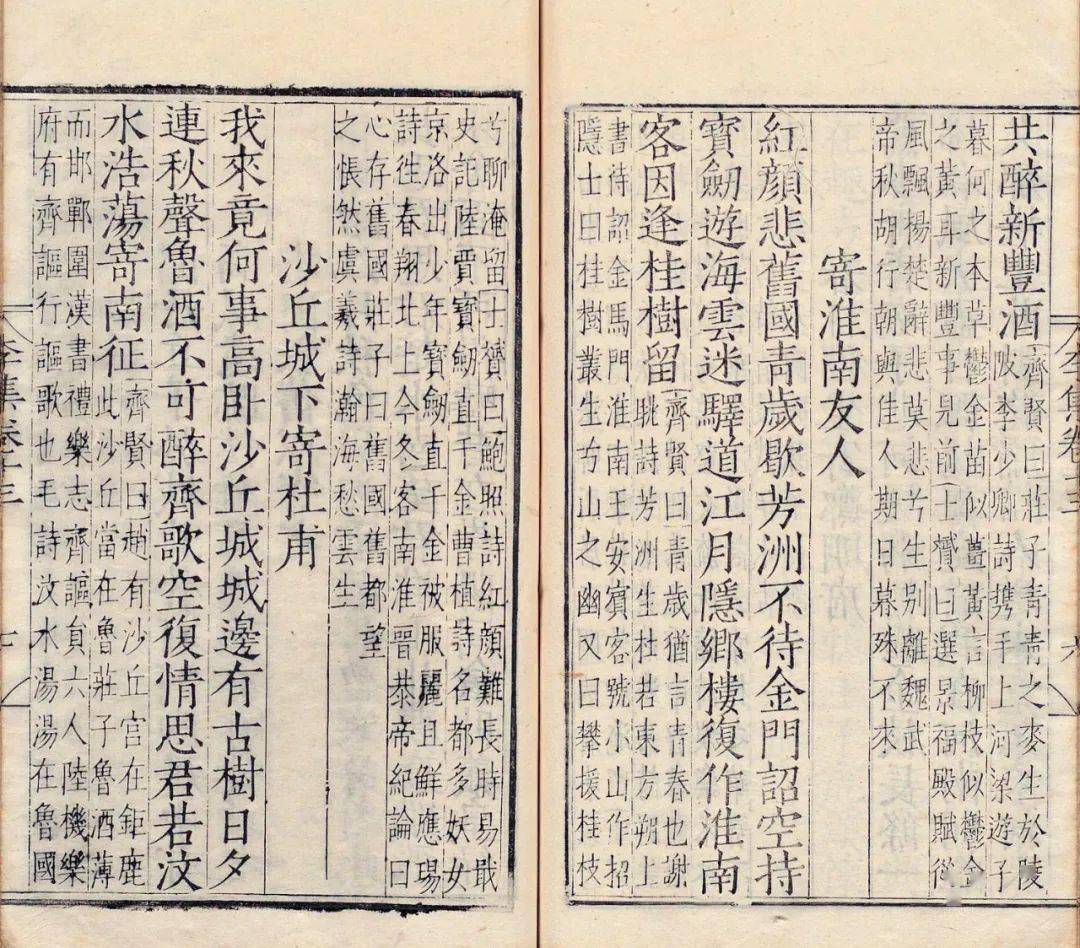 共醉新豐酒
齊賢曰莊子青青之麥生於陵
陂李少卿詩携手上河梁遊子
暮何之本草鬱金苗似薑黃言柳枝似鬱金
之黃耳新豐事見前士贇曰選景福殿賦從
風飄揚楚辭悲莫悲兮生别離魏武
帝秋胡行朝與佳人期日暮殊不來
寄淮南友人
紅顔悲舊國青歲歇芳洲不待金門詔空持
寶劒遊海雲迷驛道江月隱鄉樓復作淮南
客因逢桂樹留
齊賢曰青歲猶言青春也謝
眺詩芳洲生杜若東方朔上
書待詔金馬門淮南王安賓客號小山作招
隱士曰桂樹叢生兮山之幽又曰攀援桂枝
李集卷十三
六
兮聊淹留士贇曰鮑照詩紅顔難長時易戢
史記陸賈寶劒直千金曹植詩名都多妖女
京洛出少年寶劒直千金被服麗且鮮應瑒
詩徃春翔北上今冬客南淮晉恭帝紀論曰
心存舊國莊子曰舊國舊都望
之悵然虞羲詩瀚海愁雲生
沙丘城下寄杜甫
我來竟何事高卧沙丘城城邊有古樹日夕
連秋聲魯酒不可醉齊歌空復情思君若汶
水浩蕩寄南征
齊賢曰趙有沙丘宫在鉅鹿
此沙丘當在魯莊子魯酒薄
而邯鄲圍漢書禮樂志齊謳貟六人陸機樂
府有齊謳行謳歌也毛詩汶水湯湯在魯國
李集卷十三
七